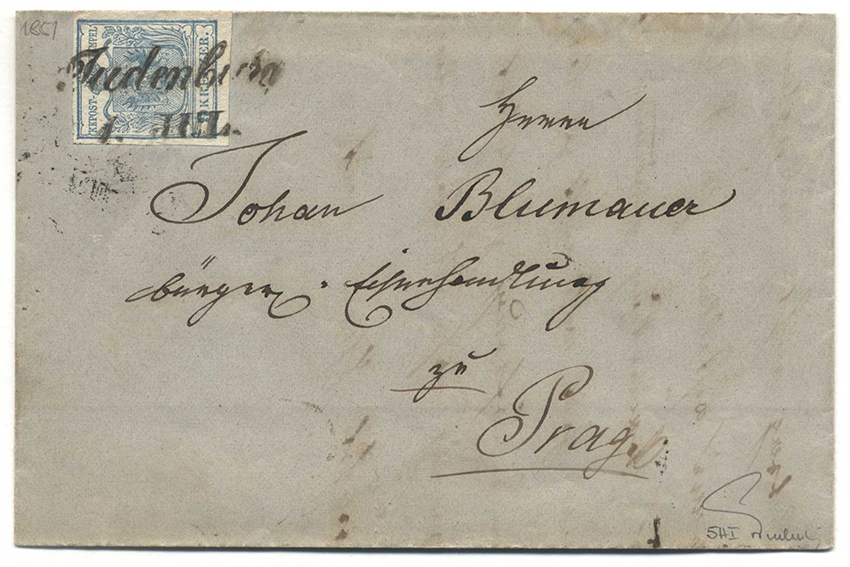 1851
KKPOST-STEMPEL
KREUZER.
Judenburg
1. JUL.
Herrn
Johan Blumauer
bürger. Eisenhandlung
zu
Prag
5HI